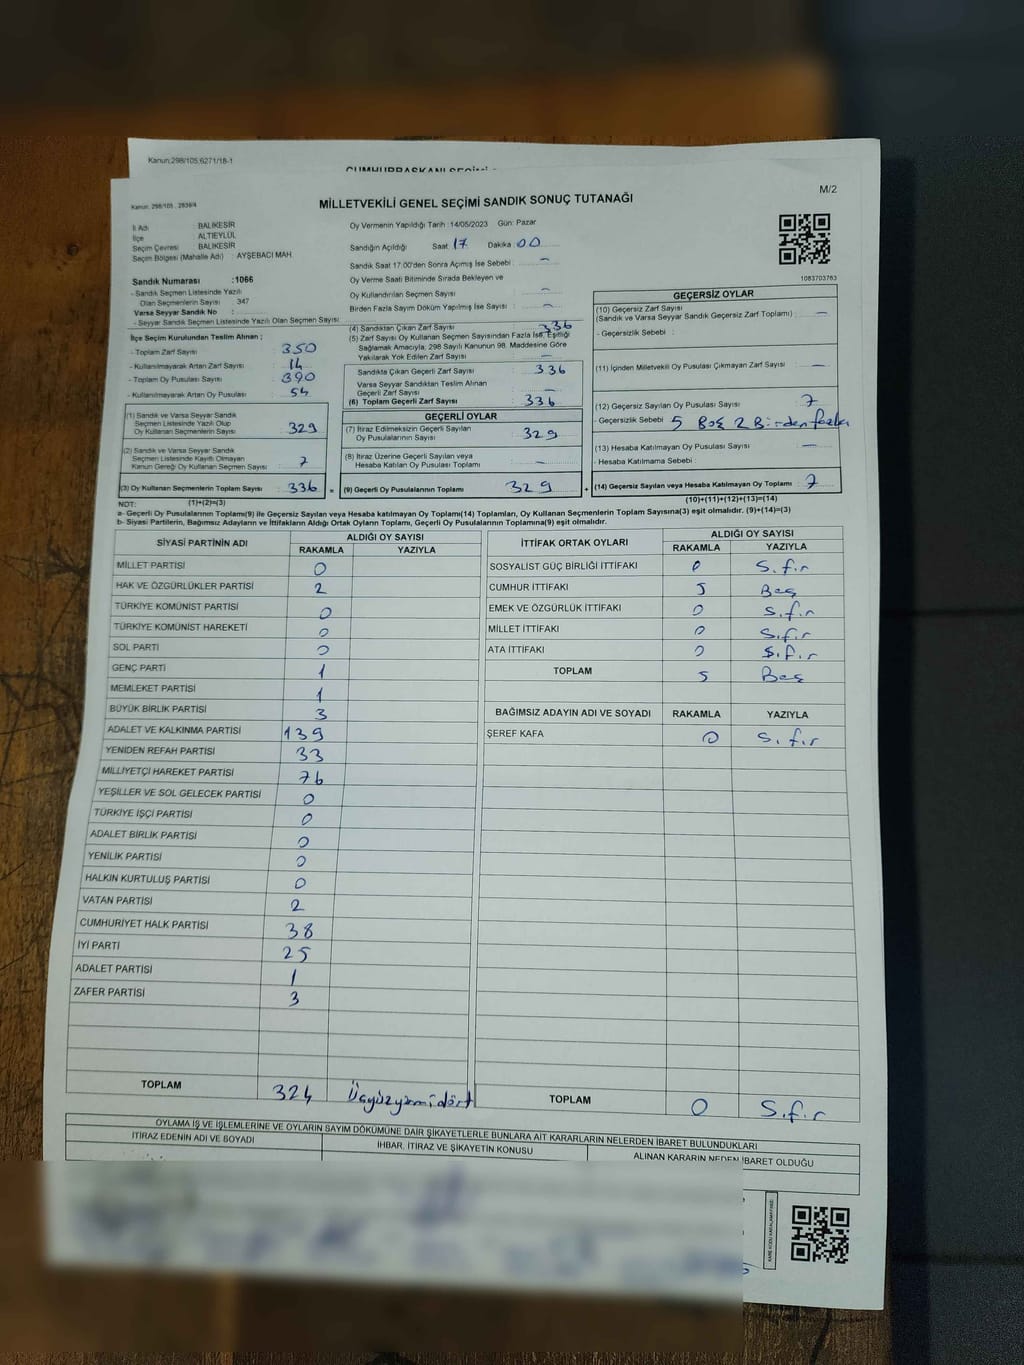 Kanun;298/105;6271/18-1
CUMHURBAŞKANI SEÇİMİ
Kanun; 298/105 , 2839/4
MİLLETVEKİLİ GENEL SEÇİMİ SANDIK SONUÇ TUTANAĞI
M/2
İl Adı BALIKESİR
İlçe ALTIEYLÜL
Seçim Çevresi BALIKESİR
Seçim Bölgesi (Mahalle Adı) AYŞEBACI MAH.
Sandık Numarası :1066
- Sandık Seçmen Listesinde Yazılı
Olan Seçmenlerin Sayısı 347
Varsa Seyyar Sandık No
- Seyyar Sandık Seçmen Listesinde Yazılı Olan Seçmen Sayısı:
İlçe Seçim Kurulundan Teslim Alınan ;
- Toplam Zarf Sayısı : 350
- Kullanılmayarak Artan Zarf Sayısı : 14
- Toplam Oy Pusulası Sayısı : 390
- Kullanılmayarak Artan Oy Pusulası : 54
(1) Sandık ve Varsa Seyyar Sandık
Seçmen Listesinde Yazılı Olup
Oy Kullanan Seçmenlerin Sayısı : 329
(2) Sandık ve Varsa Seyyar Sandık
Seçmen Listesinde Kayıtlı Olmayan
Kanun Gereği Oy Kullanan Seçmen Sayısı : 7
(3) Oy Kullanan Seçmenlerin Toplam Sayısı : 336 =
(1)+(2)=(3)
Oy Vermenin Yapıldığı Tarih :14/05/2023 Gün: Pazar
Sandığın Açıldığı Saat 17 Dakika : 00
Sandık Saat 17:00'den Sonra Açılmış İse Sebebi : -
Oy Verme Saati Bitiminde Sırada Bekleyen ve
Oy Kullandırılan Seçmen Sayısı : -
Birden Fazla Sayım Döküm Yapılmış İse Sayısı : -
(4) Sandıktan Çıkan Zarf Sayısı : 336
(5) Zarf Sayısı Oy Kullanan Seçmen Sayısından Fazla İse, Eşitliği
Sağlamak Amacıyla, 298 Sayılı Kanunun 98. Maddesine Göre
Yakılarak Yok Edilen Zarf Sayısı : -
Sandıkta Çıkan Geçerli Zarf Sayısı : 336
Varsa Seyyar Sandıktan Teslim Alınan
Geçerli Zarf Sayısı : -
(6) Toplam Geçerli Zarf Sayısı : 336
GEÇERLİ OYLAR
(7) İtiraz Edilmeksizin Geçerli Sayılan
Oy Pusulalarının Sayısı : 329
(8) İtiraz Üzerine Geçerli Sayılan veya
Hesaba Katılan Oy Pusulası Toplamı : -
(9) Geçerli Oy Pusulalarının Toplamı : 329 +
1083703763
GEÇERSİZ OYLAR
(10) Geçersiz Zarf Sayısı
(Sandık ve Varsa Seyyar Sandık Geçersiz Zarf Toplamı) : -
- Geçersizlik Sebebi :
(11) İçinden Milletvekili Oy Pusulası Çıkmayan Zarf Sayısı : -
(12) Geçersiz Sayılan Oy Pusulası Sayısı : 7
- Geçersizlik Sebebi : 5 Boş 2 Birden fazla
(13) Hesaba Katılmayan Oy Pusulası Sayısı : -
- Hesaba Katılmama Sebebi :
(14) Geçersiz Sayılan veya Hesaba Katılmayan Oy Toplamı : 7
(10)+(11)+(12)+(13)=(14)
NOT:
a- Geçerli Oy Pusulalarının Toplamı(9) ile Geçersiz Sayılan veya Hesaba katılmayan Oy Toplamı(14) Toplamları, Oy Kullanan Seçmenlerin Toplam Sayısına(3) eşit olmalıdır. (9)+(14)=(3)
b- Siyasi Partilerin, Bağımsız Adayların ve İttifakların Aldığı Ortak Oyların Toplamı, Geçerli Oy Pusulalarının Toplamına(9) eşit olmalıdır.
SİYASİ PARTİNİN ADI ALDIĞI OY SAYISI
RAKAMLA YAZIYLA
MİLLET PARTİSİ 0
HAK VE ÖZGÜRLÜKLER PARTİSİ 2
TÜRKİYE KOMÜNİST PARTİSİ 0
TÜRKİYE KOMÜNİST HAREKETİ 0
SOL PARTİ 0
GENÇ PARTİ 1
MEMLEKET PARTİSİ 1
BÜYÜK BİRLİK PARTİSİ 3
ADALET VE KALKINMA PARTİSİ 139
YENİDEN REFAH PARTİSİ 33
MİLLİYETÇİ HAREKET PARTİSİ 76
YEŞİLLER VE SOL GELECEK PARTİSİ 0
TÜRKİYE İŞÇİ PARTİSİ 0
ADALET BİRLİK PARTİSİ 0
YENİLİK PARTİSİ 0
HALKIN KURTULUŞ PARTİSİ 0
VATAN PARTİSİ 2
CUMHURİYET HALK PARTİSİ 38
İYİ PARTİ 25
ADALET PARTİSİ 1
ZAFER PARTİSİ 3
TOPLAM 324 Üçyüzyirmidört
İTTİFAK ORTAK OYLARI ALDIĞI OY SAYISI
RAKAMLA YAZIYLA
SOSYALİST GÜÇ BİRLİĞİ İTTİFAKI 0 Sıfır
CUMHUR İTTİFAKI 5 Beş
EMEK VE ÖZGÜRLÜK İTTİFAKI 0 Sıfır
MİLLET İTTİFAKI 0 Sıfır
ATA İTTİFAKI 0 Sıfır
TOPLAM 5 Beş
BAĞIMSIZ ADAYIN ADI VE SOYADI RAKAMLA YAZIYLA
ŞEREF KAFA 0 Sıfır
TOPLAM 0 Sıfır
OYLAMA İŞ VE İŞLEMLERİNE VE OYLARIN SAYIM DÖKÜMÜNE DAİR ŞİKAYETLERLE BUNLARA AİT KARARLARIN NELERDEN İBARET BULUNDUKLARI
İTİRAZ EDENİN ADI VE SOYADI İHBAR, İTİRAZ VE ŞİKAYETİN KONUSU ALINAN KARARIN NEDEN İBARET OLDUĞU